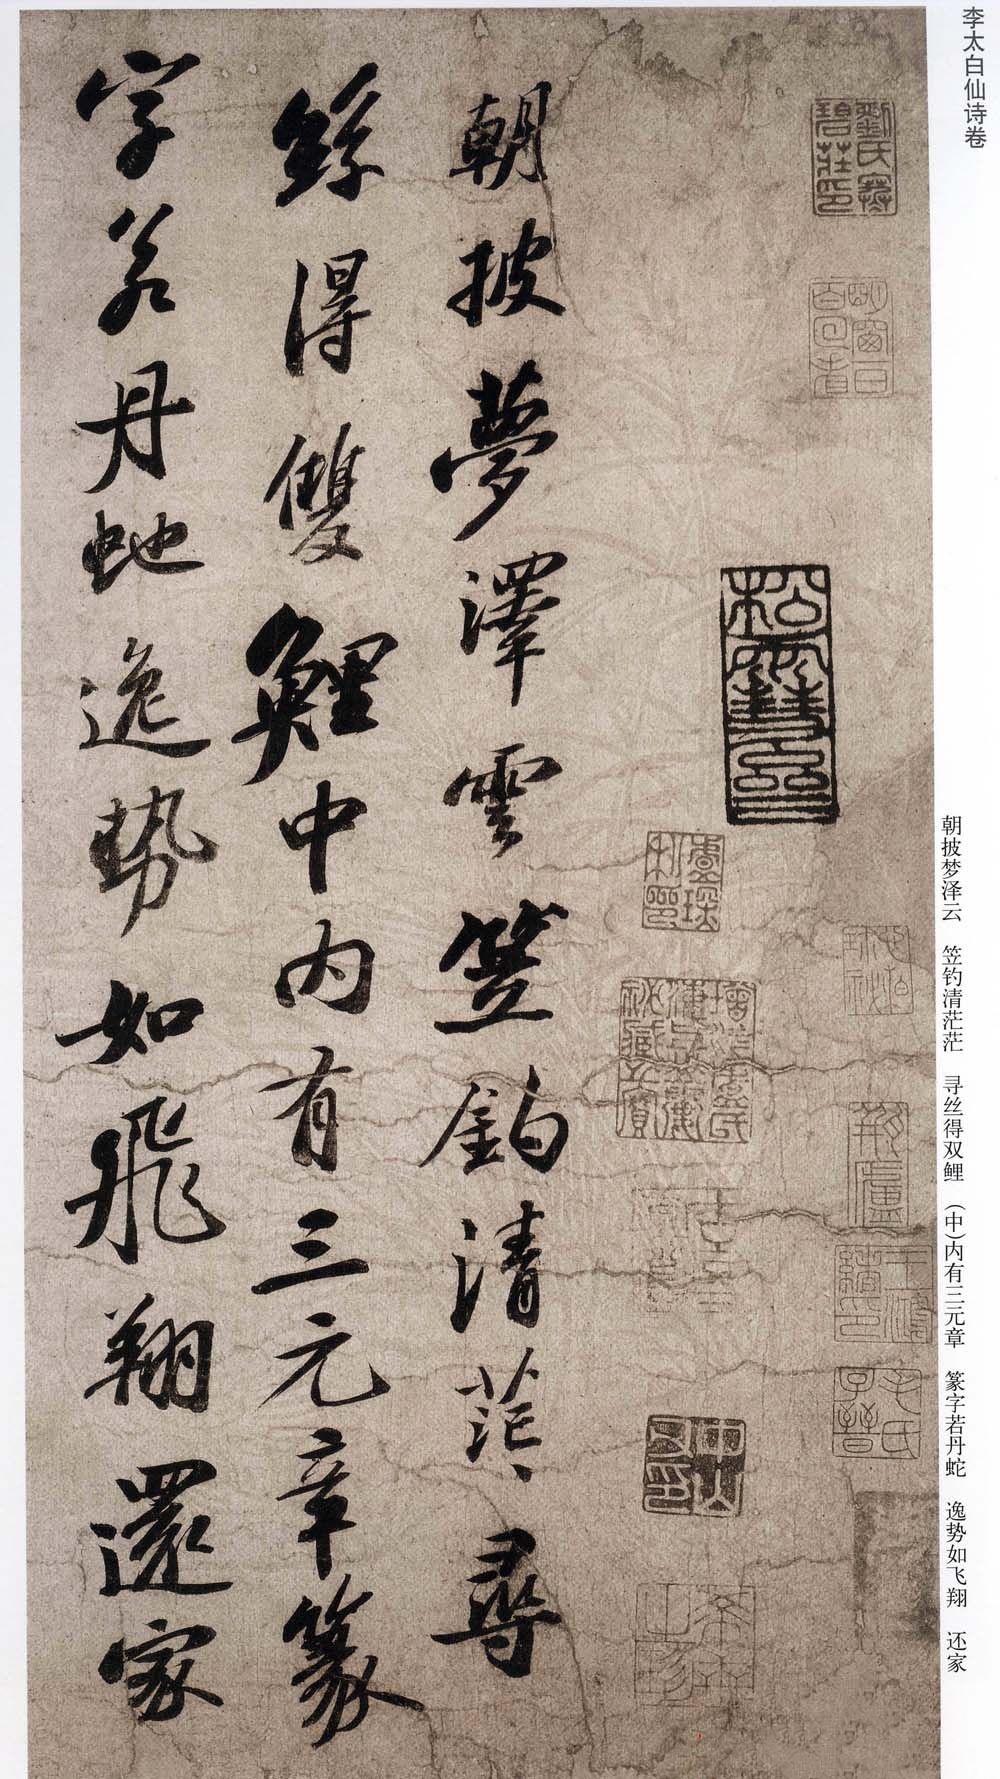 李太白仙诗卷
朝披梦泽云 笠钓清茫茫 寻丝得双鲤 (中)内有三元章 篆字若丹蛇 逸势如飞翔 还家
劉氏寒碧莊印
朝披夢澤雲笠釣清茫、尋
絲得雙鯉中内有三元章篆
字若丹虵逸勢如飛翔還家